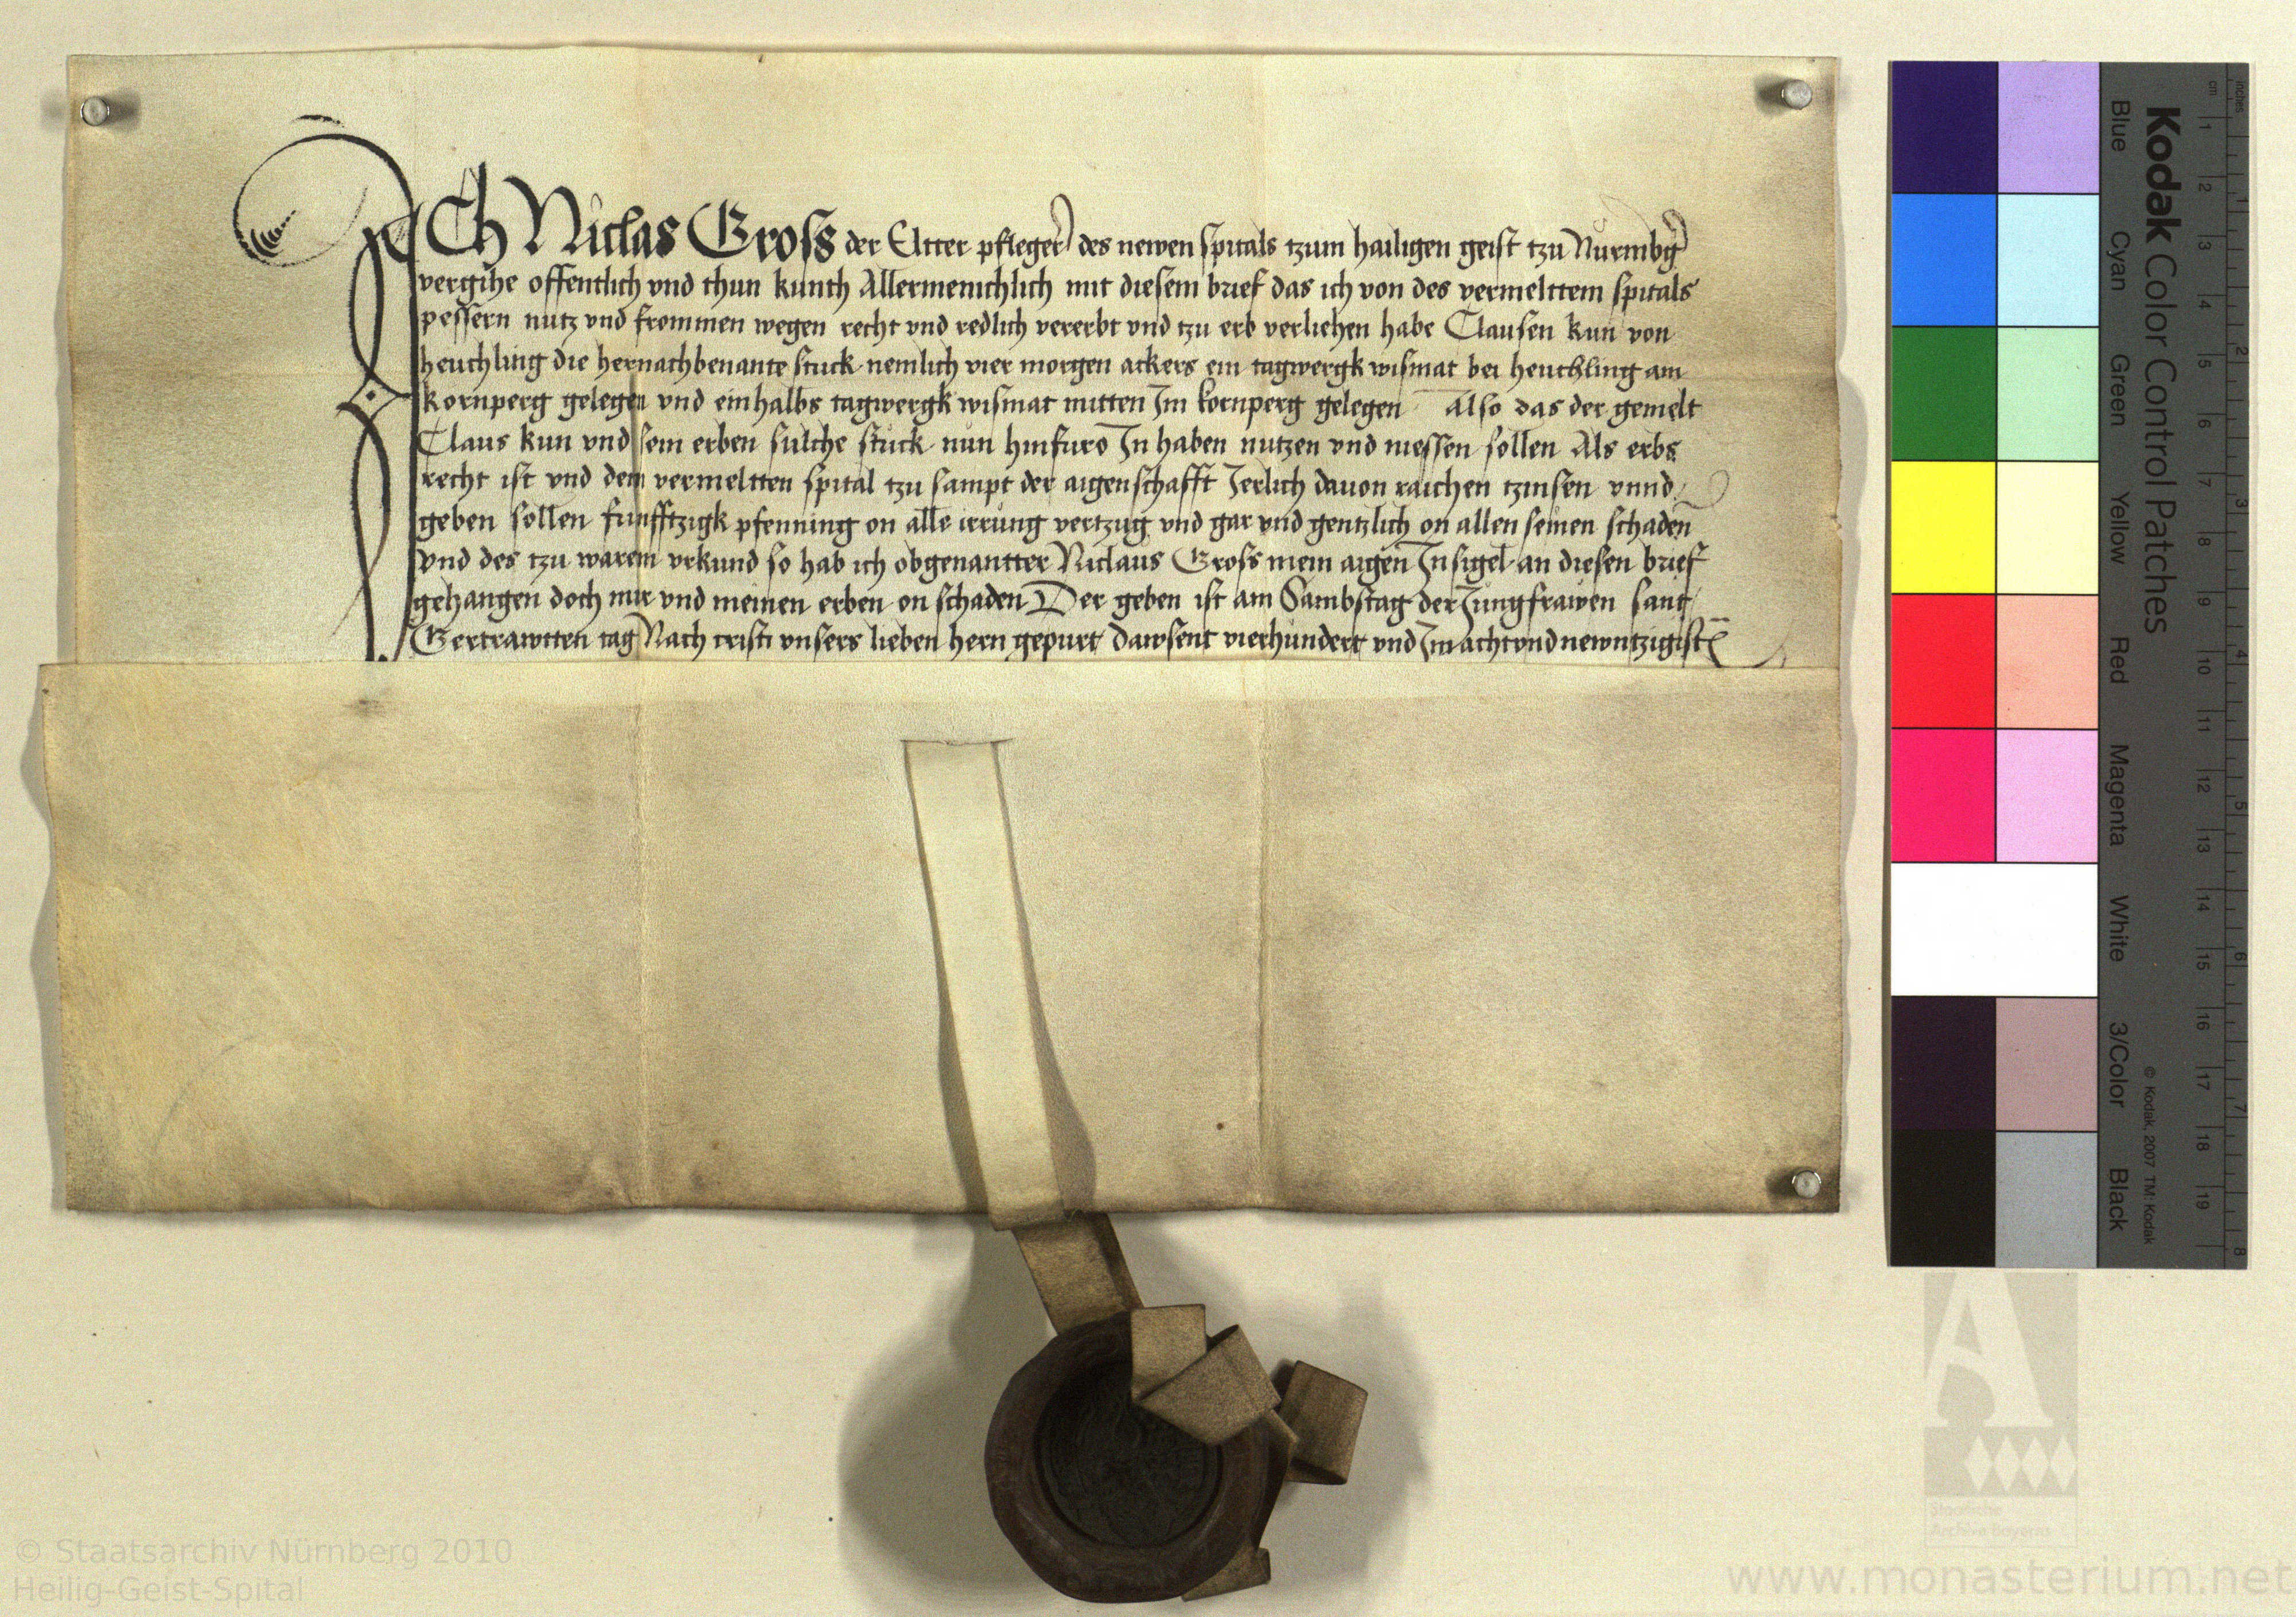 ICh Niclas Gross der Elter pfleger des newen spitals tzum hailigen geist tzu Nurmbg
vergihe offentlich vnd thun kunth Allermenichlich mit diesem brief das ich von des vermelttem spitals
pessern nutz vnd frommen wegen recht vnd redlich vererbt vnd tzu erb verliehen habe Clausen kun von
heuchling die hernachbenante stuck nemlich vier morgen ackers ein tagwergk wismat bei heuchling am
kornperg gelegen vnd ein halbs tagwergk wismat mitten Im kornperg gelegen Also das der gemelt
Claus kun vnd sein erben sulche stuck nun hinfuro In haben nutzen vnd niessen sollen Als erbs
recht ist vnd dem vermeltten spital tzu sampt der aigenschafft Jerlich dauon raichen tzinsen vnnd
geben sollen funfftzigk pfenning on alle irrung vertzug vnd gar vnd gentzlich on allen seinen schaden
vnd des tzu warem vrkund so hab ich obgenantter Niclaus Gross mein aigen Insigel an diesen brief
gehangen doch mir vnd meinen erben on schaden Der geben ist am Sambstag der Jungfrawen sant
Gertrawtten tag Nach cristi vnsers lieben hern gepurt dawsent vierhundert vnd Im achtvndnewntzigist
Kodak Color Control Patches
Blue Cyan Green Yellow Red Magenta White 3/Color Black
© Kodak, 2007 TM: Kodak
inches 1 2 3 4 5 6 7 8
cm 1 2 3 4 5 6 7 8 9 10 11 12 13 14 15 16 17 18 19
A
Staatliche
Archive Bayerns
© Staatsarchiv Nürnberg 2010
Heilig-Geist-Spital
www.monasterium.net